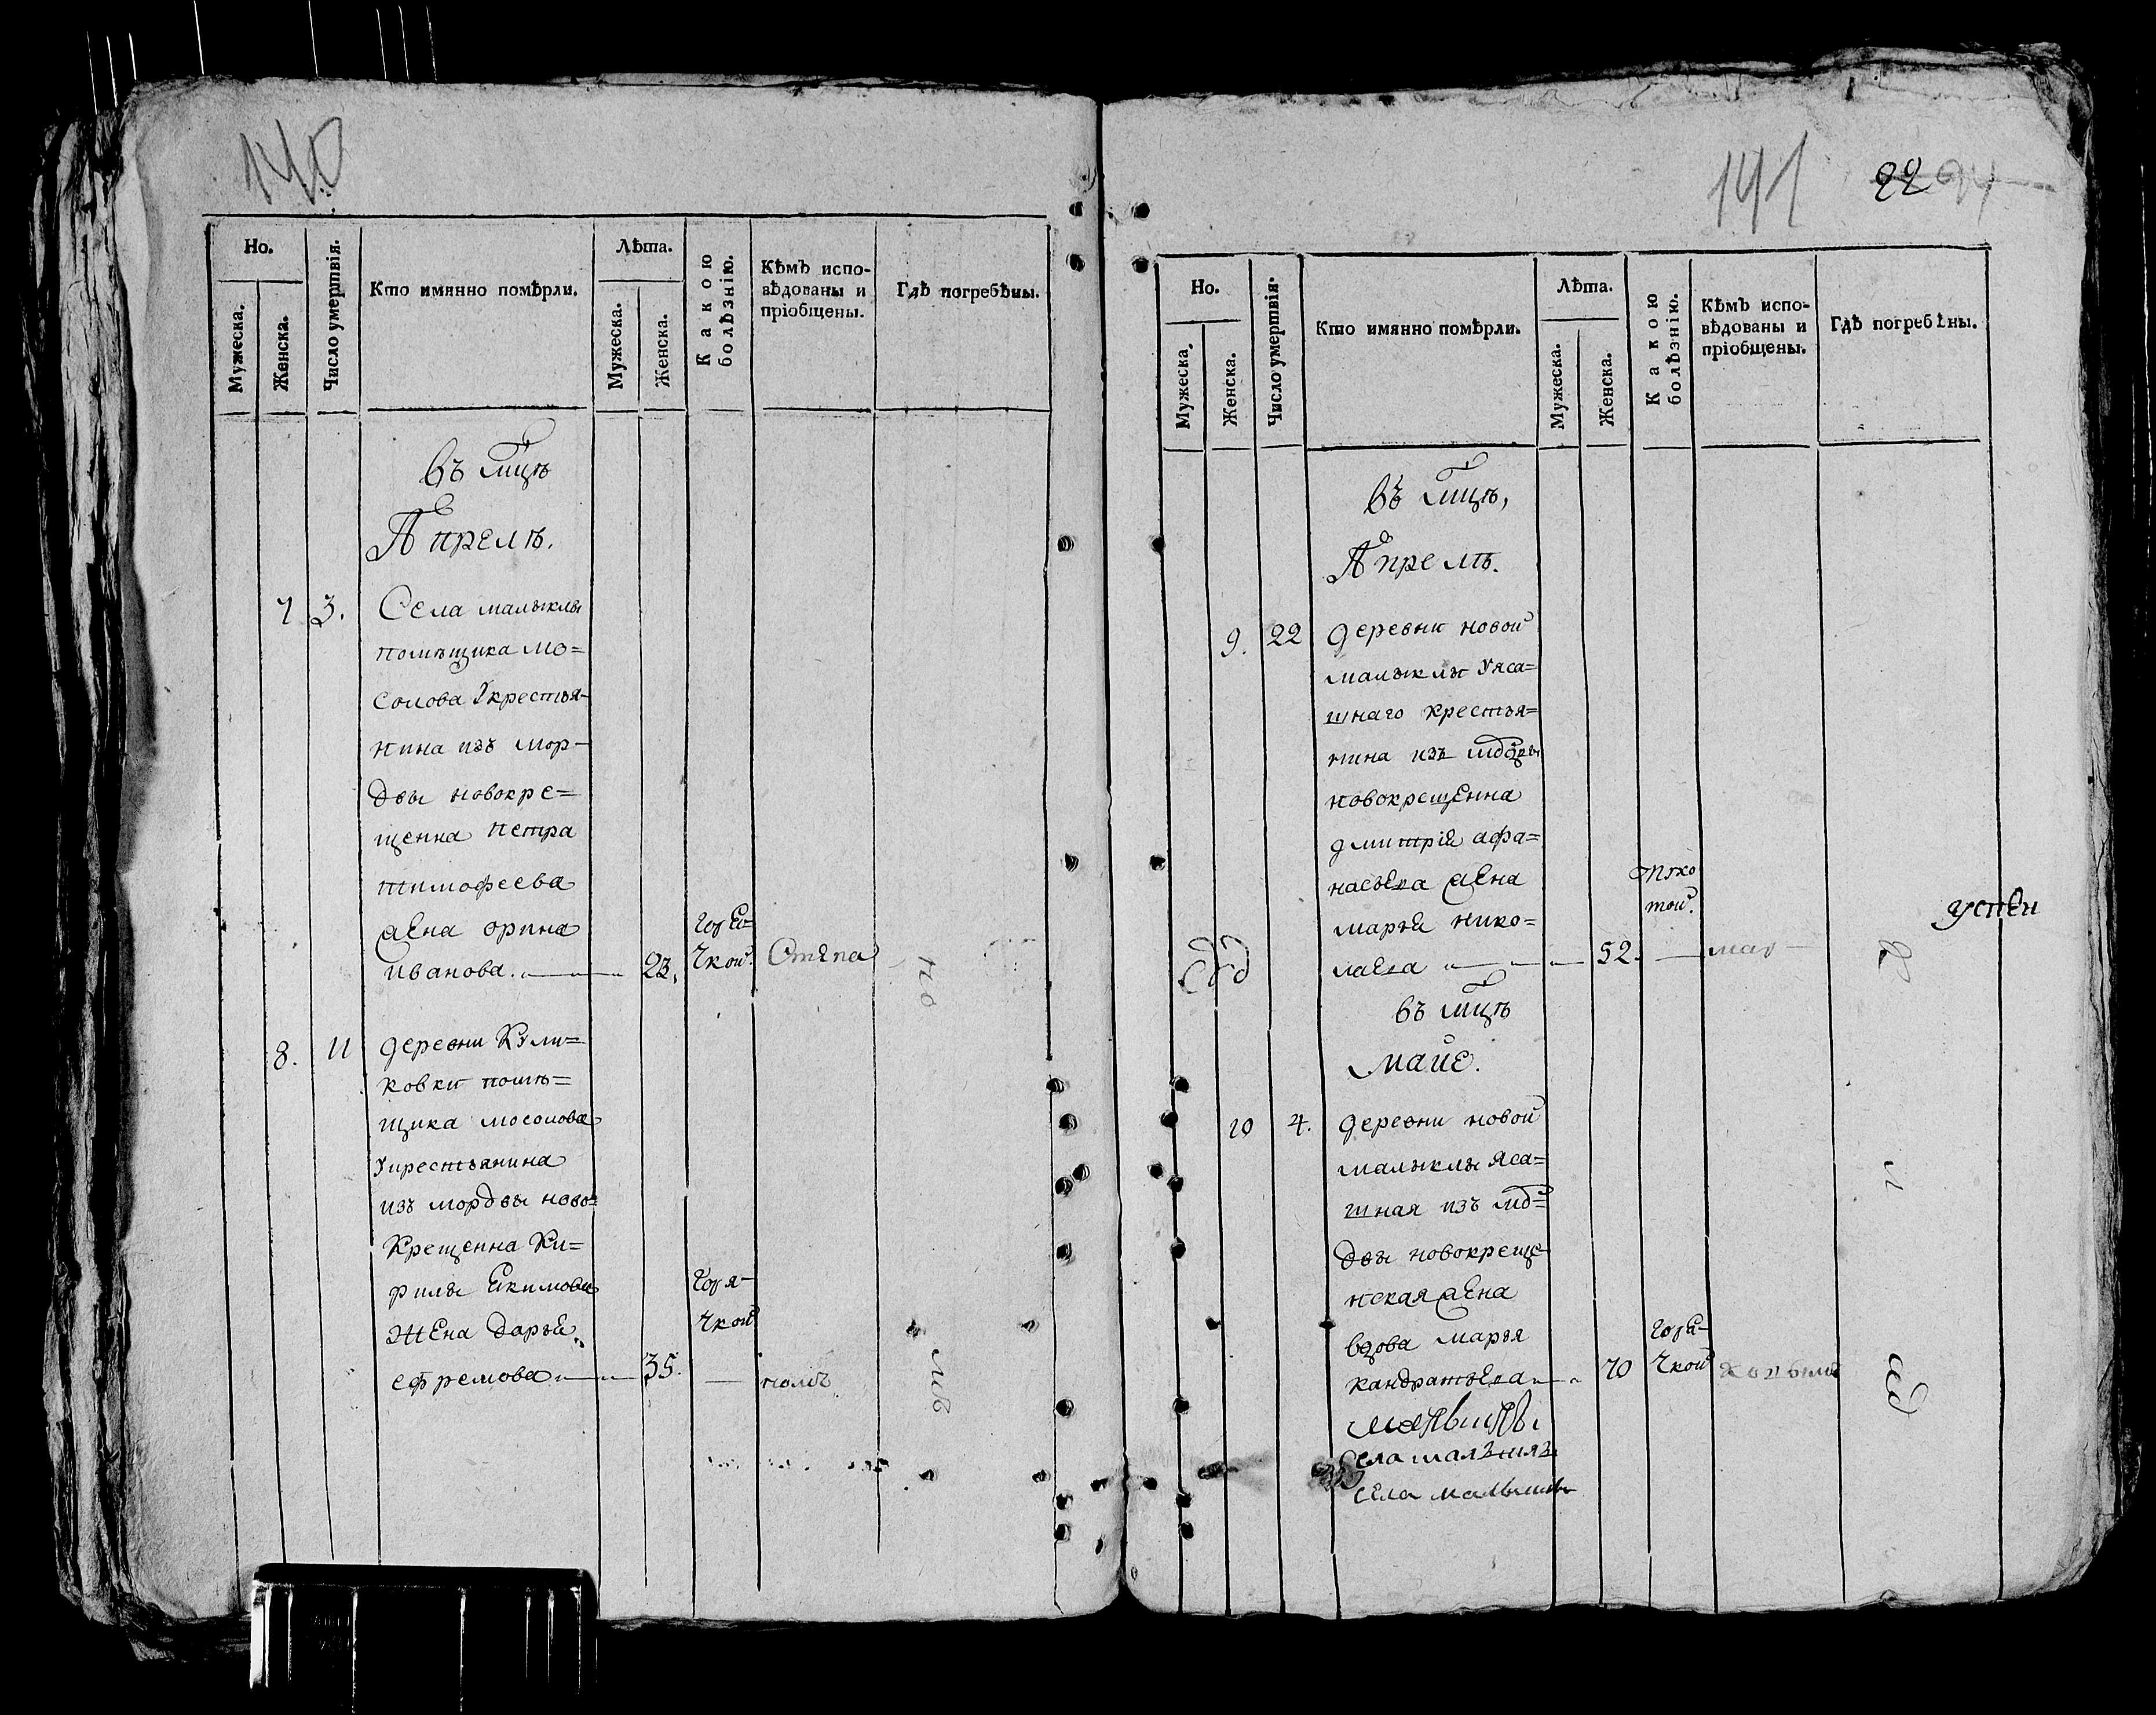 140
Но.
Мужеска.
Женска.
Число умертвія.
Кто имянно помѣрли.
Лѣта.
Мужеска.
Женска.
Какою
болѣзнію.
Кѣмъ испо-
вѣдованы и
пріобщены.
Гдѣ погребѣны.
въ мцѣ
Апрелѣ.
7 3. Села малыклы
помѣщика мо=
солова крестья-
нина изъ мор-
двы новокре=
щенна петра
тимофеева
жена орина
иванова. 23. горе=
чкой.
8. 11 деревни Кули=
ковки помѣ=
щика мосолова
крестьянина
изъ мордвы ново=
крещенна Ки=
рилы Екимова
жена дарья
ефремова 35. горя-
чкой
141 22
Но.
Мужеска.
Женска.
Число умертвія.
Кто имянно помѣрли.
Лѣта.
Мужеска.
Женска.
Какою
болѣзнію.
Кѣмъ испо-
вѣдованы и
пріобщены.
Гдѣ погребѣны.
въ мцѣ,
Апрелѣ.
9. 22 деревни новой
малыклы яса=
шнаго крестья=
нина изъ
новокрещенна
дмитрій афа=
насьева жена
марья нико=
лаева 52.
въ мцѣ
майе.
10 4. деревни новой
малыклы яса=
шная изъ мо=
двы новокреще
нская жена
вдова марья
кандратьева 70 горя-
чкой
успен